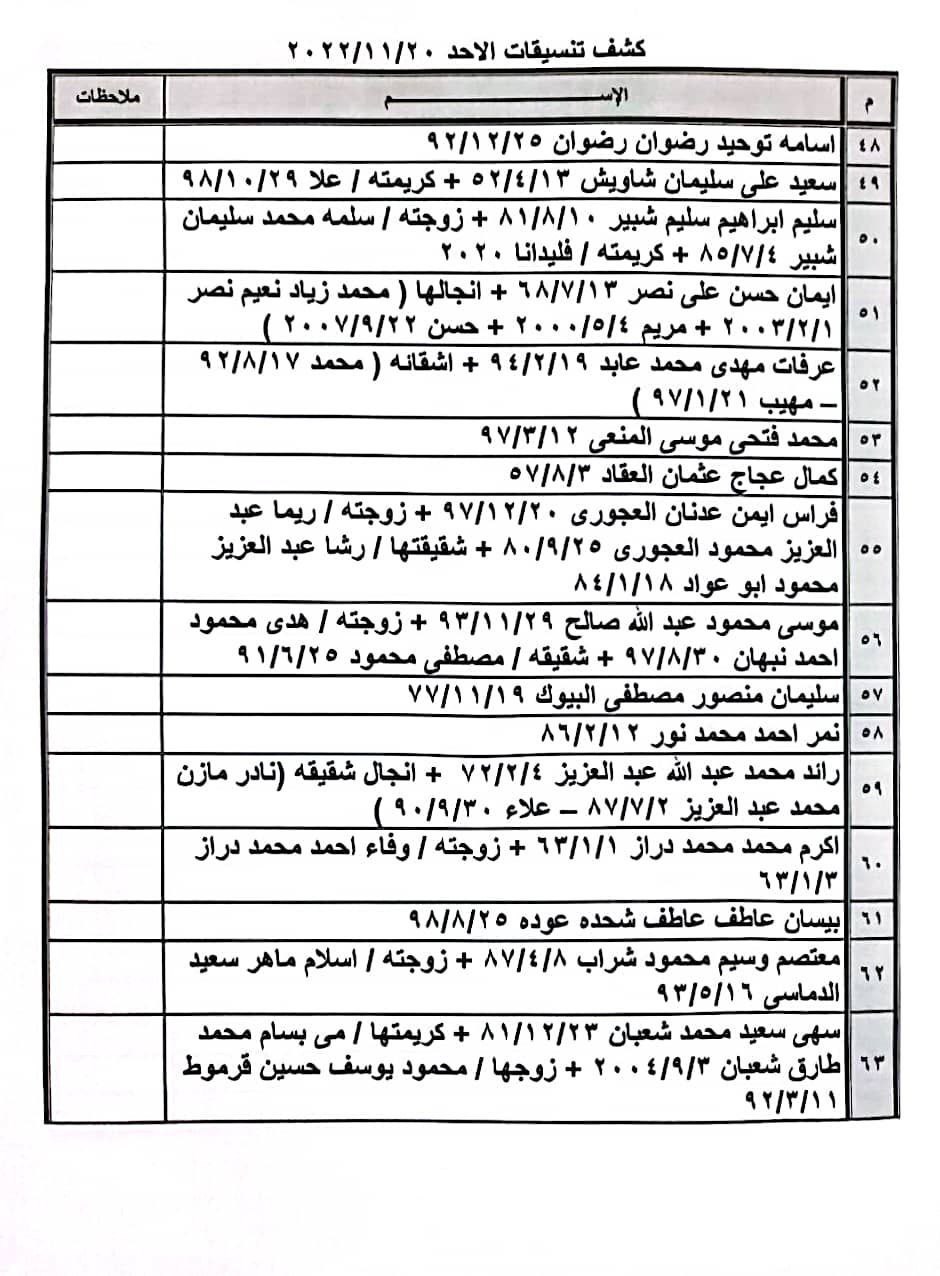 كشف تنسيقات الاحد ٢٠٢٢/١١/٢٠
م الإســـــــــم ملاحظات
٤٨ اسامه توحيد رضوان رضوان ٩٢/١٢/٢٥
٤٩ سعيد على سليمان شاويش ٥٢/٤/١٣ + كريمته / علا ٩٨/١٠/٢٩
٥٠ سليم ابراهيم سليم شبير ٨١/٨/١٠ + زوجته / سلمه محمد سليمان
شبير ٨٥/٧/٤ + كريمته / فليدانا ٢٠٢٠
٥١ ايمان حسن على نصر ٦٨/٧/١٣ + انجالها ( محمد زياد نعيم نصر
٢٠٠٣/٢/١ + مريم ٢٠٠٠/٥/٤ + حسن ٢٠٠٧/٩/٢٢ )
٥٢ عرفات مهدى محمد عابد ٩٤/٢/١٩ + اشقائه ( محمد ٩٢/٨/١٧
– مهيب ٩٧/١/٢١ )
٥٣ محمد فتحى موسى المنعى ٩٧/٣/١٢
٥٤ كمال عجاج عثمان العقاد ٥٧/٨/٣
٥٥ فراس ايمن عدنان العجورى ٩٧/١٢/٢٠ + زوجته / ريما عبد
العزيز محمود العجورى ٨٠/٩/٢٥ + شقيقتها / رشا عبد العزيز
محمود ابو عواد ٨٤/١/١٨
٥٦ موسى محمود عبد الله صالح ٩٣/١١/٢٩ + زوجته / هدى محمود
احمد نبهان ٩٧/٨/٣٠ + شقيقه / مصطفى محمود ٩١/٦/٢٥
٥٧ سليمان منصور مصطفى البيوك ٧٧/١١/١٩
٥٨ نمر احمد محمد نور ٨٦/٢/١٢
٥٩ رائد محمد عبد الله عبد العزيز ٧٢/٢/٤ + انجال شقيقه (نادر مازن
محمد عبد العزيز ٨٧/٧/٢ – علاء ٩٠/٩/٣٠ )
٦٠ اكرم محمد محمد دراز ٦٣/١/١ + زوجته / وفاء احمد محمد دراز
٦٣/١/٣
٦١ بيسان عاطف عاطف شحده عوده ٩٨/٨/٢٥
٦٢ معتصم وسيم محمود شراب ٨٧/٤/٨ + زوجته / اسلام ماهر سعيد
الدماسى ٩٣/٥/١٦
٦٣ سهى سعيد محمد شعبان ٨١/١٢/٢٣ + كريمتها / مى بسام محمد
طارق شعبان ٢٠٠٤/٩/٣ + زوجها / محمود يوسف حسين قرموط
٩٢/٣/١١